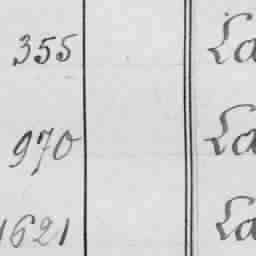 355 La
970 La
1621 La